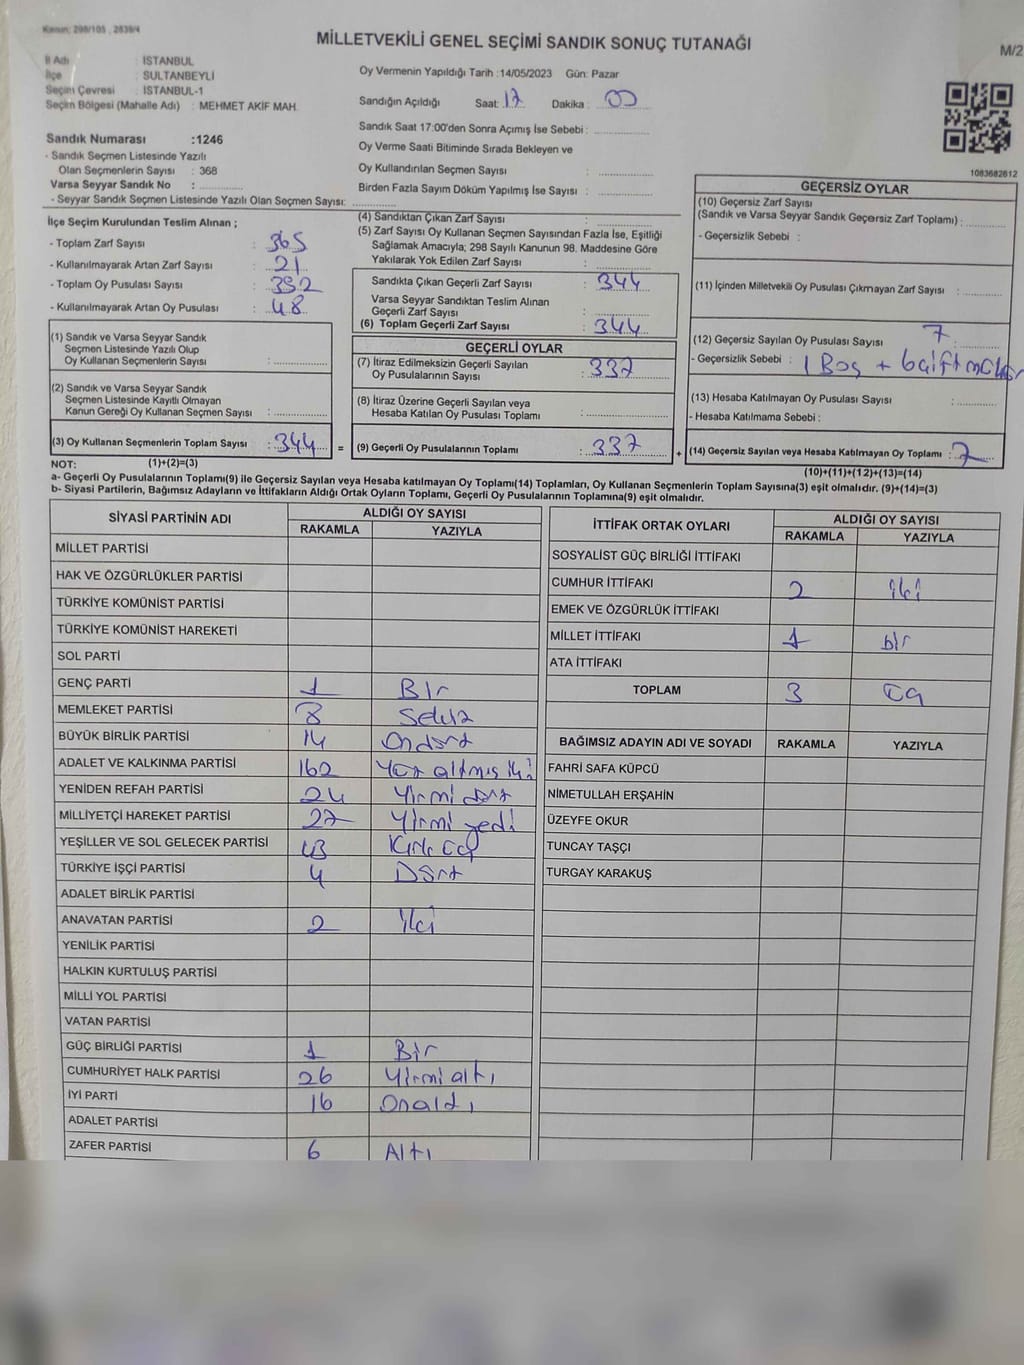 Kanun: 298/105 , 2839/4
MİLLETVEKİLİ GENEL SEÇİMİ SANDIK SONUÇ TUTANAĞI
M/2
İl Adı : İSTANBUL
İlçe : SULTANBEYLİ
Seçim Çevresi : İSTANBUL-1
Seçim Bölgesi (Mahalle Adı) : MEHMET AKİF MAH.
Sandık Numarası :1246
- Sandık Seçmen Listesinde Yazılı
Olan Seçmenlerin Sayısı : 368
Varsa Seyyar Sandık No :
- Seyyar Sandık Seçmen Listesinde Yazılı Olan Seçmen Sayısı:
Oy Vermenin Yapıldığı Tarih :14/05/2023 Gün: Pazar
Sandığın Açıldığı Saat: 17 Dakika : 00
Sandık Saat 17:00'den Sonra Açımış İse Sebebi :
Oy Verme Saati Bitiminde Sırada Bekleyen ve
Oy Kullandırılan Seçmen Sayısı :
Birden Fazla Sayım Döküm Yapılmış İse Sayısı :
1083682612
İlçe Seçim Kurulundan Teslim Alınan ;
- Toplam Zarf Sayısı : 365
- Kullanılmayarak Artan Zarf Sayısı : 21
- Toplam Oy Pusulası Sayısı : 392
- Kullanılmayarak Artan Oy Pusulası : 48
(1) Sandık ve Varsa Seyyar Sandık
Seçmen Listesinde Yazılı Olup
Oy Kullanan Seçmenlerin Sayısı :
(2) Sandık ve Varsa Seyyar Sandık
Seçmen Listesinde Kayıtlı Olmayan
Kanun Gereği Oy Kullanan Seçmen Sayısı :
(3) Oy Kullanan Seçmenlerin Toplam Sayısı : 344 =
(1)+(2)=(3)
(4) Sandıktan Çıkan Zarf Sayısı :
(5) Zarf Sayısı Oy Kullanan Seçmen Sayısından Fazla İse, Eşitliği
Sağlamak Amacıyla; 298 Sayılı Kanunun 98. Maddesine Göre
Yakılarak Yok Edilen Zarf Sayısı :
Sandıkta Çıkan Geçerli Zarf Sayısı : 344
Varsa Seyyar Sandıktan Teslim Alınan
Geçerli Zarf Sayısı :
(6) Toplam Geçerli Zarf Sayısı : 344
GEÇERLİ OYLAR
(7) İtiraz Edilmeksizin Geçerli Sayılan
Oy Pusulalarının Sayısı : 337
(8) İtiraz Üzerine Geçerli Sayılan veya
Hesaba Katılan Oy Pusulası Toplamı :
(9) Geçerli Oy Pusulalarının Toplamı : 337 +
GEÇERSİZ OYLAR
(10) Geçersiz Zarf Sayısı
(Sandık ve Varsa Seyyar Sandık Geçersiz Zarf Toplamı) :
- Geçersizlik Sebebi :
(11) İçinden Milletvekili Oy Pusulası Çıkmayan Zarf Sayısı :
(12) Geçersiz Sayılan Oy Pusulası Sayısı : 7
- Geçersizlik Sebebi : 1 Boş + 6 çift mühür
(13) Hesaba Katılmayan Oy Pusulası Sayısı :
- Hesaba Katılmama Sebebi :
(14) Geçersiz Sayılan veya Hesaba Katılmayan Oy Toplamı : 7
(10)+(11)+(12)+(13)=(14)
NOT:
a- Geçerli Oy Pusulalarının Toplamı(9) ile Geçersiz Sayılan veya Hesaba katılmayan Oy Toplamı(14) Toplamları, Oy Kullanan Seçmenlerin Toplam Sayısına(3) eşit olmalıdır. (9)+(14)=(3)
b- Siyasi Partilerin, Bağımsız Adayların ve İttifakların Aldığı Ortak Oyların Toplamı, Geçerli Oy Pusulalarının Toplamına(9) eşit olmalıdır.
SİYASİ PARTİNİN ADI ALDIĞI OY SAYISI
RAKAMLA YAZIYLA
MİLLET PARTİSİ
HAK VE ÖZGÜRLÜKLER PARTİSİ
TÜRKİYE KOMÜNİST PARTİSİ
TÜRKİYE KOMÜNİST HAREKETİ
SOL PARTİ
GENÇ PARTİ 1 Bir
MEMLEKET PARTİSİ 8 Sekiz
BÜYÜK BİRLİK PARTİSİ 14 Ondört
ADALET VE KALKINMA PARTİSİ 162 Yüz altmış iki
YENİDEN REFAH PARTİSİ 24 Yirmi dört
MİLLİYETÇİ HAREKET PARTİSİ 27 Yirmi yedi
YEŞİLLER VE SOL GELECEK PARTİSİ 43 Kırk üç
TÜRKİYE İŞÇİ PARTİSİ 4 Dört
ADALET BİRLİK PARTİSİ
ANAVATAN PARTİSİ 2 iki
YENİLİK PARTİSİ
HALKIN KURTULUŞ PARTİSİ
MİLLİ YOL PARTİSİ
VATAN PARTİSİ
GÜÇ BİRLİĞİ PARTİSİ 1 Bir
CUMHURİYET HALK PARTİSİ 26 Yirmi altı
İYİ PARTİ 16 Onaltı
ADALET PARTİSİ
ZAFER PARTİSİ 6 Altı
İTTİFAK ORTAK OYLARI ALDIĞI OY SAYISI
RAKAMLA YAZIYLA
SOSYALİST GÜÇ BİRLİĞİ İTTİFAKI
CUMHUR İTTİFAKI 2 iki
EMEK VE ÖZGÜRLÜK İTTİFAKI
MİLLET İTTİFAKI 1 bir
ATA İTTİFAKI
TOPLAM 3 üç
BAĞIMSIZ ADAYIN ADI VE SOYADI RAKAMLA YAZIYLA
FAHRİ SAFA KÜPCÜ
NİMETULLAH ERŞAHİN
ÜZEYFE OKUR
TUNCAY TAŞÇI
TURGAY KARAKUŞ